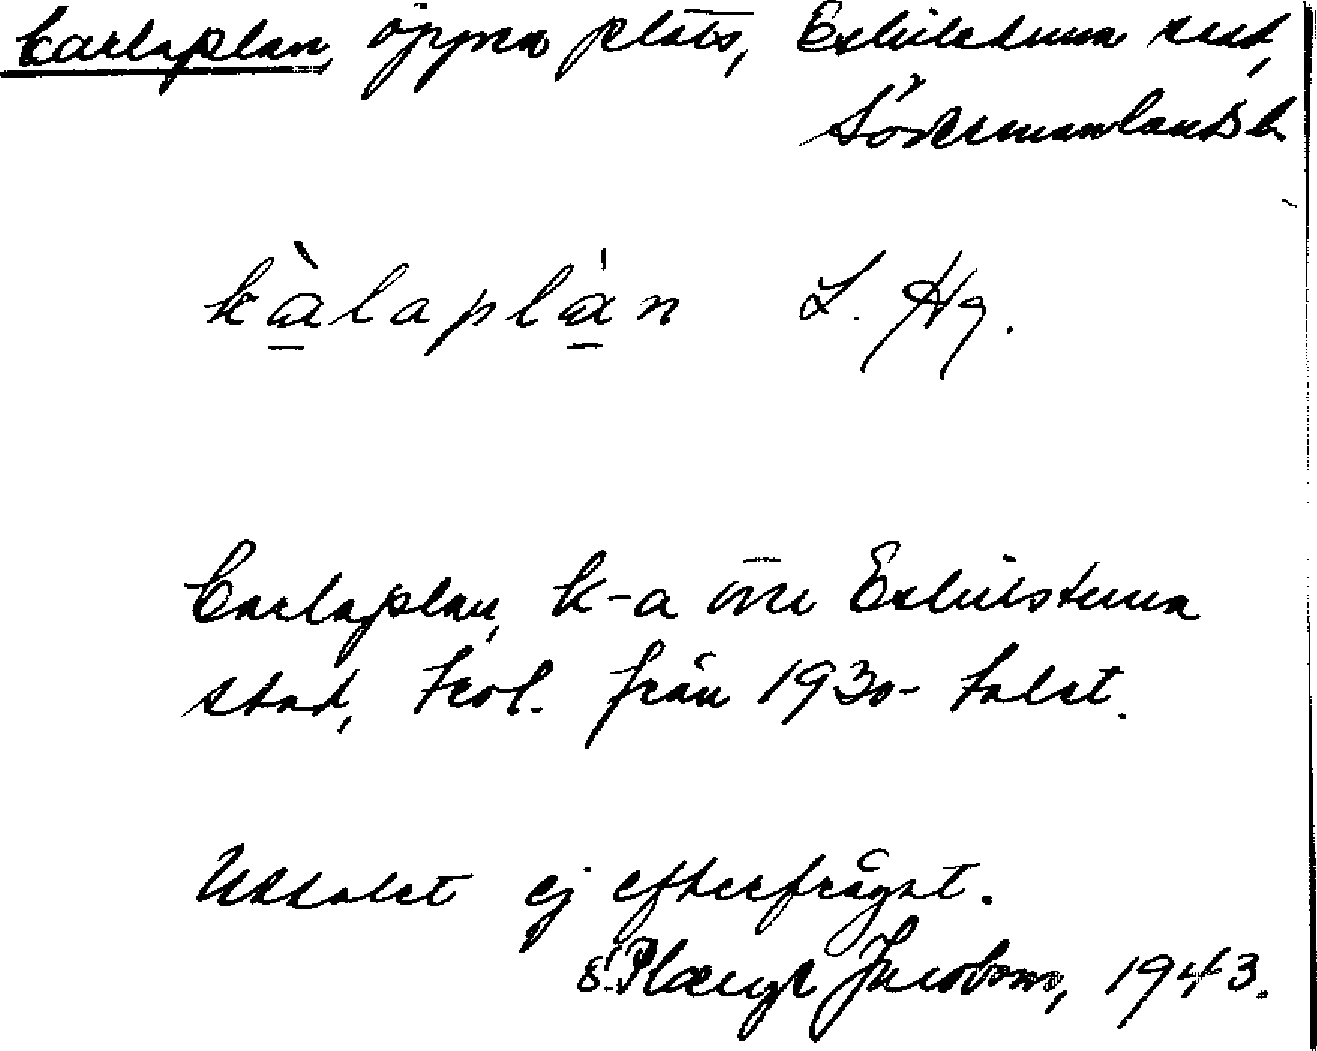 Carlaplan, öppen plats, Eskilstuna stad,
Södermanlands l.
kàlaplán L. Hg.
Carlaplan, k-a inne Eskilstuna
stad, trol. från 1930-talet.
Uttalet ej efterfrågat.
Jacobson, 1943.